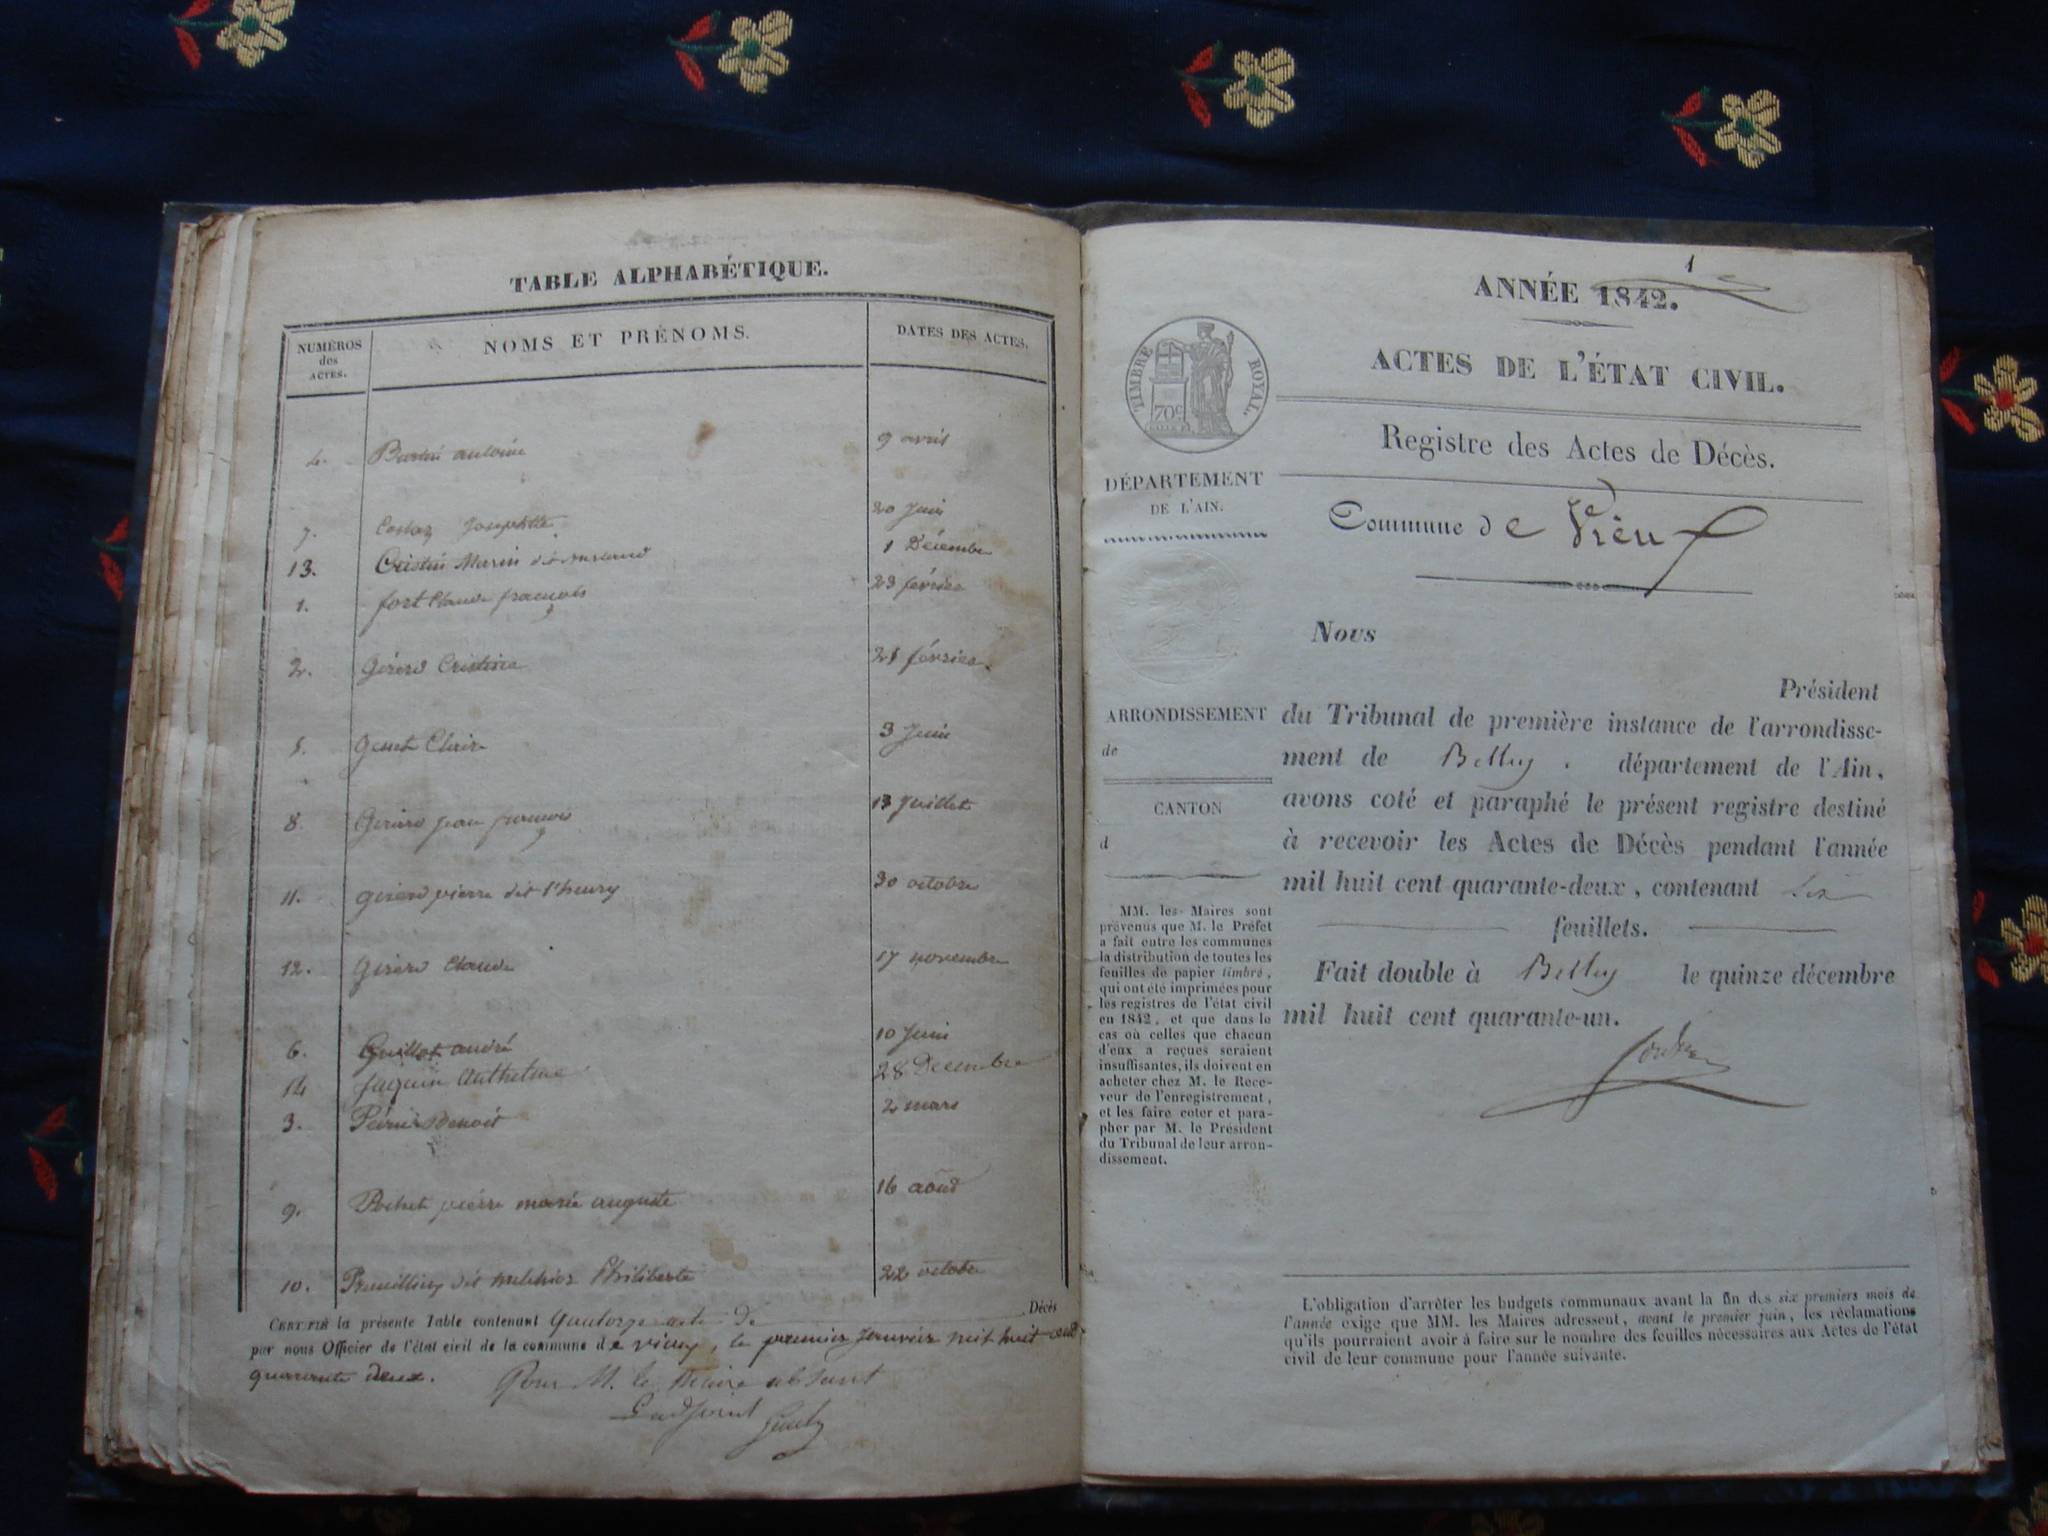 TABLE ALPHABÉTIQUE.
NUMÉROS des ACTES. NOMS ET PRÉNOMS. DATES DES ACTES.
4. antoine 9 avril
7. Costaz Josephte 20 Juin
13. Cristin Marin dit 1 Décembre
1. fort Claude françois 23 février
2. Girerd Cristine 21 février.
5. Genet Claire 3 Juin
8. Girard jean françois 13 Juillet
11. girerd pierre dit l'heury 30 octobre
12. girerd Claude 17 novembre
6. Guillot andré 10 Juin
14 Jaquin Anthelme 28 Decembre
3. Benoit 2 mars
9. Pochet pierre marie auguste 16 aout
10. dit melchior Philiberte 22 octobre
CERTIFIÉ la présente Table contenant Quatorze acte de Décès
par nous Officier de l'état civil de la commune de vieu, le premier Janvier mil huit cent
quarante deux.
Pour M. le Maire absent
L'adjoint
1
ANNÉE 1842.
ACTES DE L'ÉTAT CIVIL.
Registre des Actes de Décès.
Commune de Vieu
TIMBRE ROYAL.
70c
DÉPARTEMENT
DE L'AIN.
ARRONDISSEMENT
de
CANTON
d
MM. les Maires sont
prévenus que M. le Préfet
a fait entre les communes
la distribution de toutes les
feuilles de papier timbré,
qui ont été imprimées pour
les registres de l'état civil
en 1842, et que dans le
cas où celles que chacun
d'eux a reçues seraient
insuffisantes, ils doivent en
acheter chez M. le Rece-
veur de l'enregistrement,
et les faire coter et para-
pher par M. le Président
du Tribunal de leur arron-
dissement.
Nous
Président
du Tribunal de première instance de l'arrondisse-
ment de Belley. département de l'Ain,
avons coté et paraphé le présent registre destiné
à recevoir les Actes de Décès pendant l'année
mil huit cent quarante-deux, contenant six
feuillets.
Fait double à Belley le quinze décembre
mil huit cent quarante-un.
L'obligation d'arrêter les budgets communaux avant la fin des six premiers mois de
l'année exige que MM. les Maires adressent, avant le premier juin, les réclamations
qu'ils pourraient avoir à faire sur le nombre des feuilles nécessaires aux Actes de l'état
civil de leur commune pour l'année suivante.